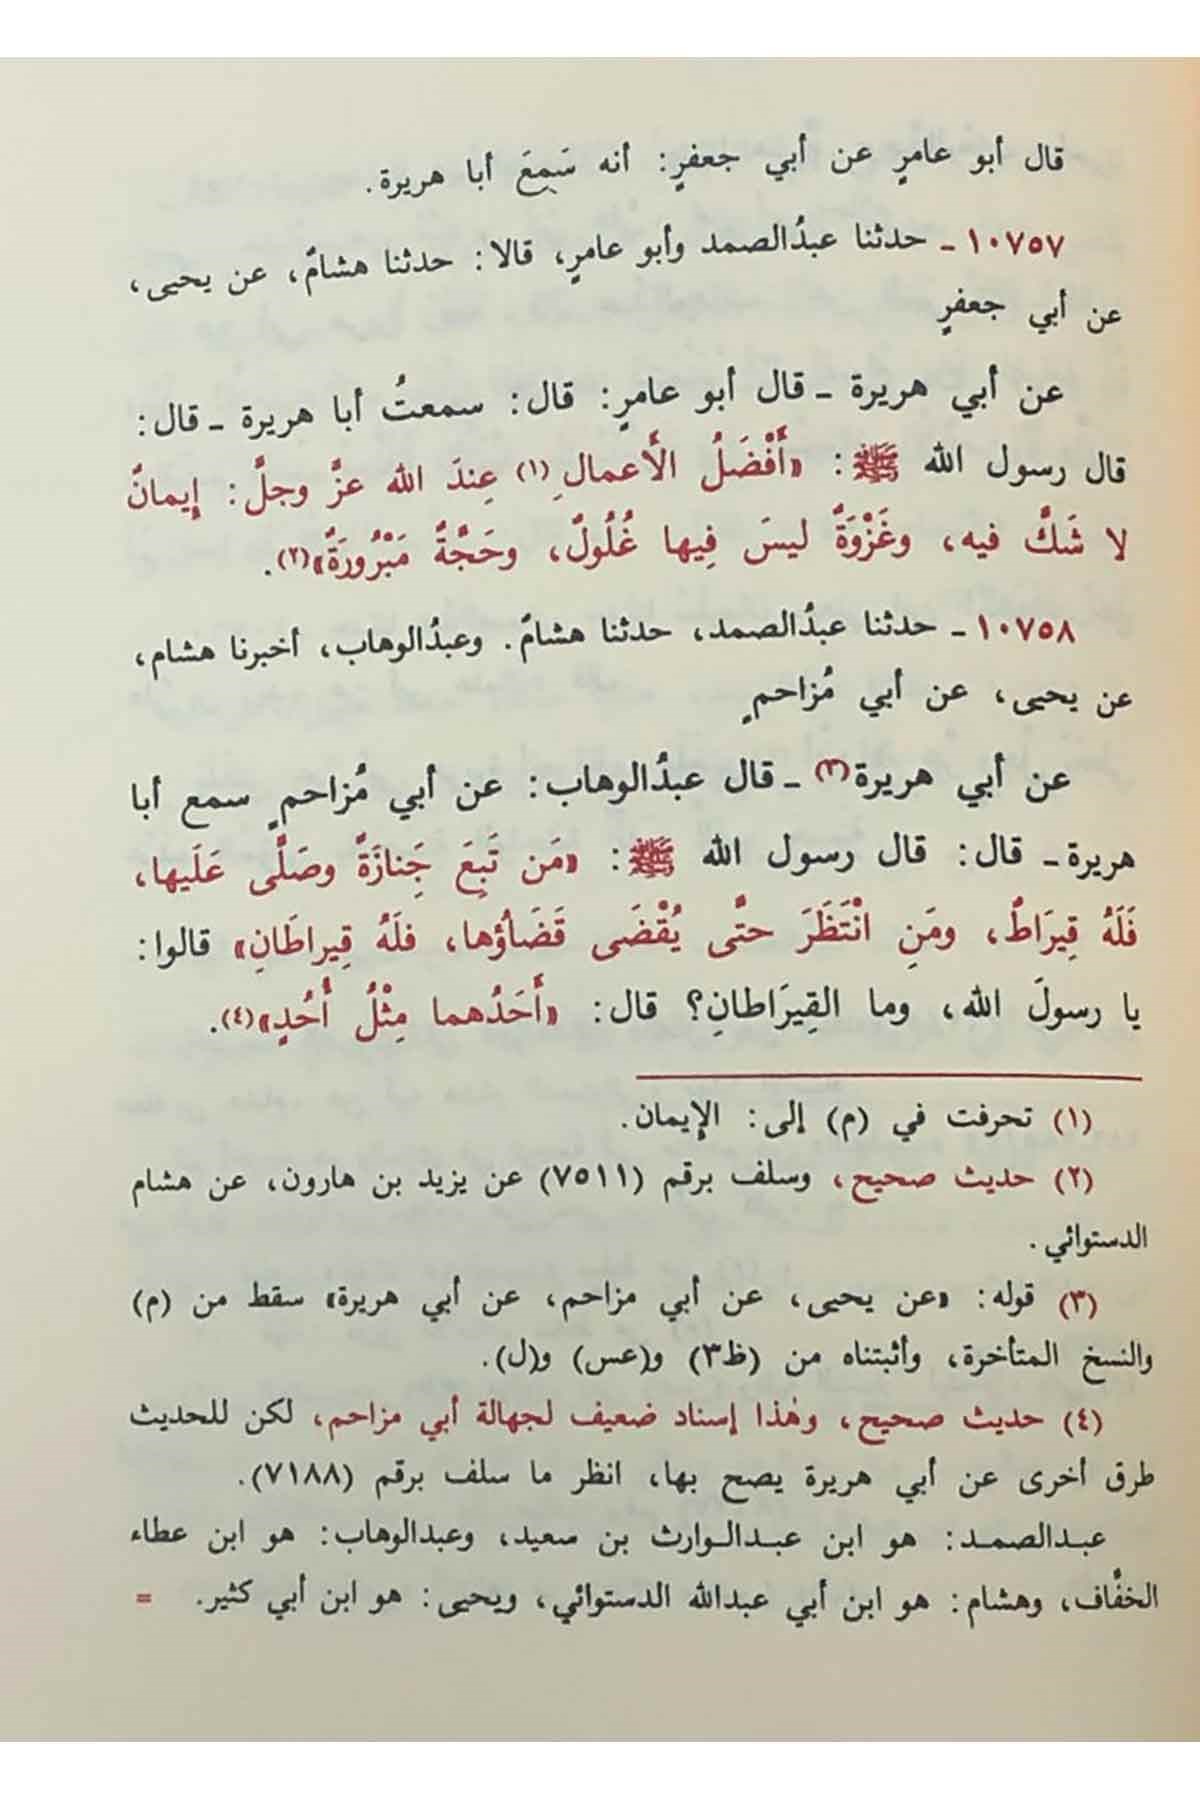 قال أبو عامرٍ عن أبي جعفرٍ: أنه سَمِعَ أبا هريرة.
١٠٧٥٧ ـ حدثنا عبدُالصمد وأبو عامرٍ، قالا: حدثنا هشامٌ، عن يحيى،
عن أبي جعفرٍ
عن أبي هريرة ـ قال أبو عامرٍ: قال: سمعتُ أبا هريرة ـ قال:
قال رسول الله ﷺ: «أَفْضَلُ الأَعمالِ(١) عِندَ الله عزَّ وجلَّ: إِيمانٌ
لا شَكَّ فيه، وغَزْوَةٌ ليسَ فِيها غُلُولٌ، وحَجَّةٌ مَبْرُورَةٌ»(٢).
١٠٧٥٨ ـ حدثنا عبدُالصمد، حدثنا هشامٌ. وعبدُالوهاب، أخبرنا هشام،
عن يحيى، عن أبي مُزاحمٍ
عن أبي هريرة(٣) ـ قال عبدُالوهاب: عن أبي مُزاحمٍ سمع أبا
هريرة ـ قال: قال رسول الله ﷺ: «مَن تَبِعَ جَِنازَةً وصَلَّى عَلَيها،
فَلَهُ قِيرَاطٌ، ومَنِ انْتَظَرَ حتَّى يُقْضَى قَضَاؤُها، فلَهُ قِيراطَانِ» قالوا:
يا رسولَ الله، وما القِيرَاطانِ؟ قال: «أَحَدُهما مِثْلُ أُحُدٍ»(٤).
(١) تحرفت في (م) إلى: الإيمان.
(٢) حديث صحيح، وسلف برقم (٧٥١١) عن يزيد بن هارون، عن هشام
الدستوائي.
(٣) قوله: «عن يحيى، عن أبي مزاحم، عن أبي هريرة» سقط من (م)
والنسخ المتأخرة، وأثبتناه من (ظ٣) و(عس) و(ل).
(٤) حديث صحيح، وهٰذا إسناد ضعيف لجهالة أبي مزاحم، لكن للحديث
طرق أخرى عن أبي هريرة يصح بها، انظر ما سلف برقم (٧١٨٨).
عبدالصمد: هو ابن عبدالوارث بن سعيد، وعبدالوهاب: هو ابن عطاء
الخفَّاف، وهشام: هو ابن أبي عبدالله الدستوائي، ويحيى: هو ابن أبي كثير. =